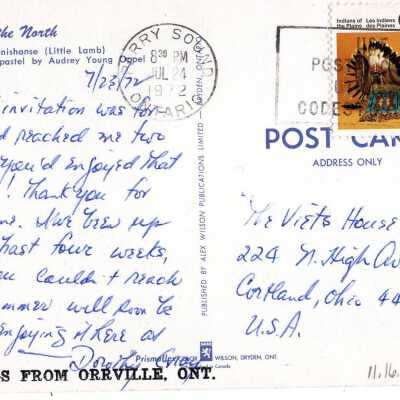 the North
nishanse (Little Lamb)
pastel by Audrey Young Oppel
7/23/72
invitation was for
d reached me two
you'd enjoyed that
! Thank you for
me. I've been up
past four weeks,
couldn't reach
mmer will soon be
enjoying it here as
Dorothy Gray
S FROM ORRVILLE, ONT.
PUBLISHED BY ALEX WILSON PUBLICATIONS LIMITED — DRYDEN, ONT.
Prismaflex
WILSON, DRYDEN, ONT.
Canada
RRY SOUND
8 30 PM
JUL 24
1972
ONTARIO
POS
CODES
Indians of the Plains
Les Indiens des Plaines
POST CA
ADDRESS ONLY
The Viets House
224 N. High Av
Cortland, Ohio 44
U.S.A.
11.16.